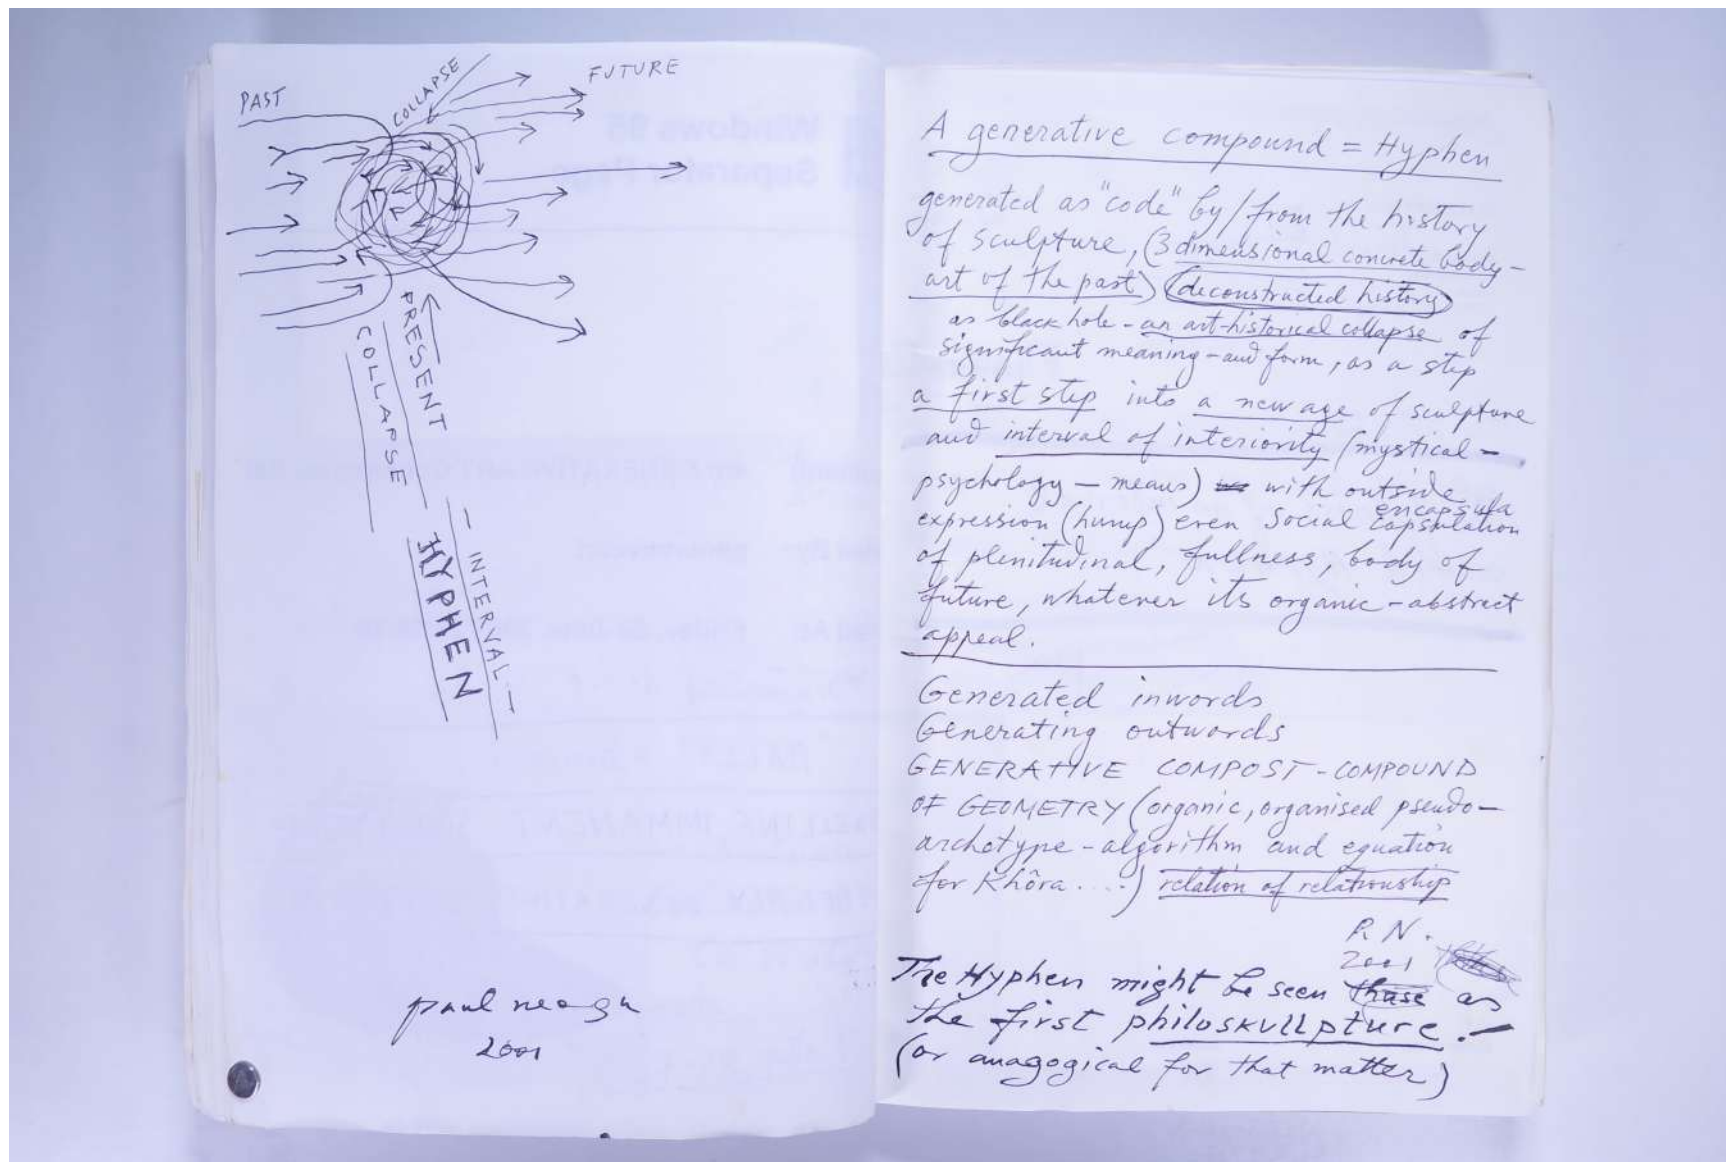 PAST
COLLAPSE
FUTURE
PRESENT
COLLAPSE
HYPHEN
- INTERVAL -
paul neagu
2001
A generative compound = Hyphen
generated as "code" by/from the history
of sculpture, (3 dimensional concrete body-
art of the past) (deconstructed history)
as black hole - an art-historical collapse of
significant meaning - and form, as a step
a first step into a new age of sculpture
and interval of interiority (mystical -
psychology - means) with outside
encapsula
expression (hump) even social capsulation
of plenitudinal, fullness, body of
future, whatever its organic - abstract
appeal.
Generated inwords
Generating outwords
GENERATIVE COMPOST-COMPOUND
OF GEOMETRY (organic, organised pseudo-
archetype - algorithm and equation
for Khôra ....) relation of relationship
P. N.
2001
The Hyphen might be seen as
the first philoskullpture!
(or anagogical for that matter)